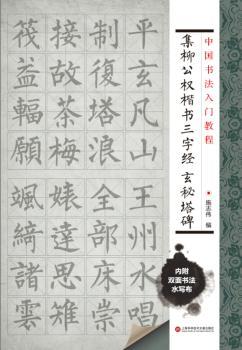 中国书法入门教程
集柳公权楷书三字经 玄秘塔碑
施志伟 编
平玄凡山王州水唱
制復塔浪全部床崇
接故茶梅達思雉
筏益輻願颯綺諸雲
内附
双面书法
水写布
上海科学技术文献出版社